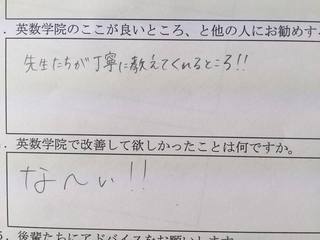 英数学院のここが良いところ、と他の人にお勧めす
先生たちが丁寧に教えてくれるところ!!
英数学院で改善して欲しかったことは何ですか。
な〜い!!
5. 後輩たちにアドバイスをお願いします